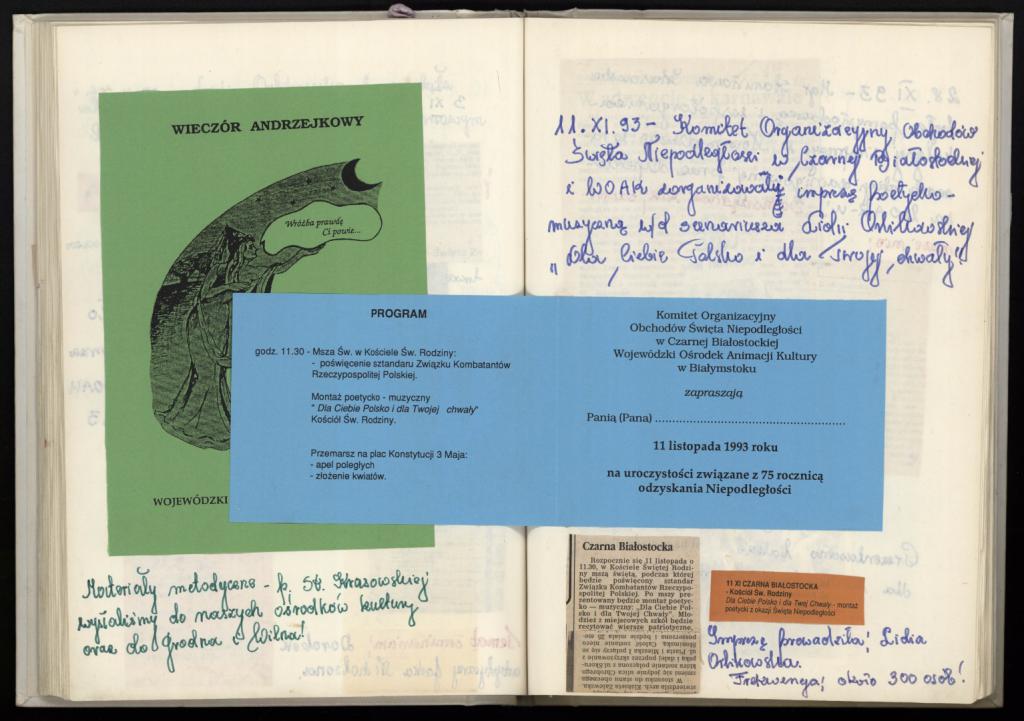 WIECZÓR ANDRZEJKOWY
Wróżba prawdę
Ci powie...
WOJEWÓDZKI
Materiały metodyczne - p. St. Krasowskiej
wysłaliśmy do naszych ośrodków kultury
oraz do Grodna i Wilna!
11. XI. 93 -, Komitet Organizacyjny Obchodów
Święta Niepodległości w Czarnej Białostockiej
i WOAK zorganizowały imprezę poetycko-
muzyczną w/d scenariusza Lidii Orlikowskiej
"Dla Ciebie Polsko i dla Twojej chwały".
PROGRAM
godz. 11.30 - Msza Św. w Kościele Św. Rodziny:
- poświęcenie sztandaru Związku Kombatantów
Rzeczypospolitej Polskiej.
Montaż poetycko - muzyczny
" Dla Ciebie Polsko i dla Twojej chwały"
Kościół Św. Rodziny.
Przemarsz na plac Konstytucji 3 Maja:
- apel poległych
- złożenie kwiatów.
Komitet Organizacyjny
Obchodów Święta Niepodległości
w Czarnej Białostockiej
Wojewódzki Ośrodek Animacji Kultury
w Białymstoku
zapraszają
Panią (Pana) ............................................................
11 listopada 1993 roku
na uroczystości związane z 75 rocznicą
odzyskania Niepodległości
Czarna Białostocka
Rozpocznie się 11 listopada o
11.30, w Kościele Świętej Rodzi-
ny mszą świętą, podczas której
będzie poświęcony sztandar
Związku Kombatantów Rzeczy-
pospolitej Polskiej. Po mszy pre-
zentowany będzie montaż poetyc-
ko — muzyczny: „Dla Ciebie Pol-
sko i dla Twojej Chwały". Mło-
dzież z miejscowych szkół będzie
recytować wiersze patriotyczne.
11 XI CZARNA BIAŁOSTOCKA
- Kościół Św. Rodziny
Dla Ciebie Polsko i dla Twej Chwały - montaż
poetycki z okazji Święta Niepodległości
Imprezę prowadziła: Lidia
Orlikowska.
Frekwencja: około 300 osób!